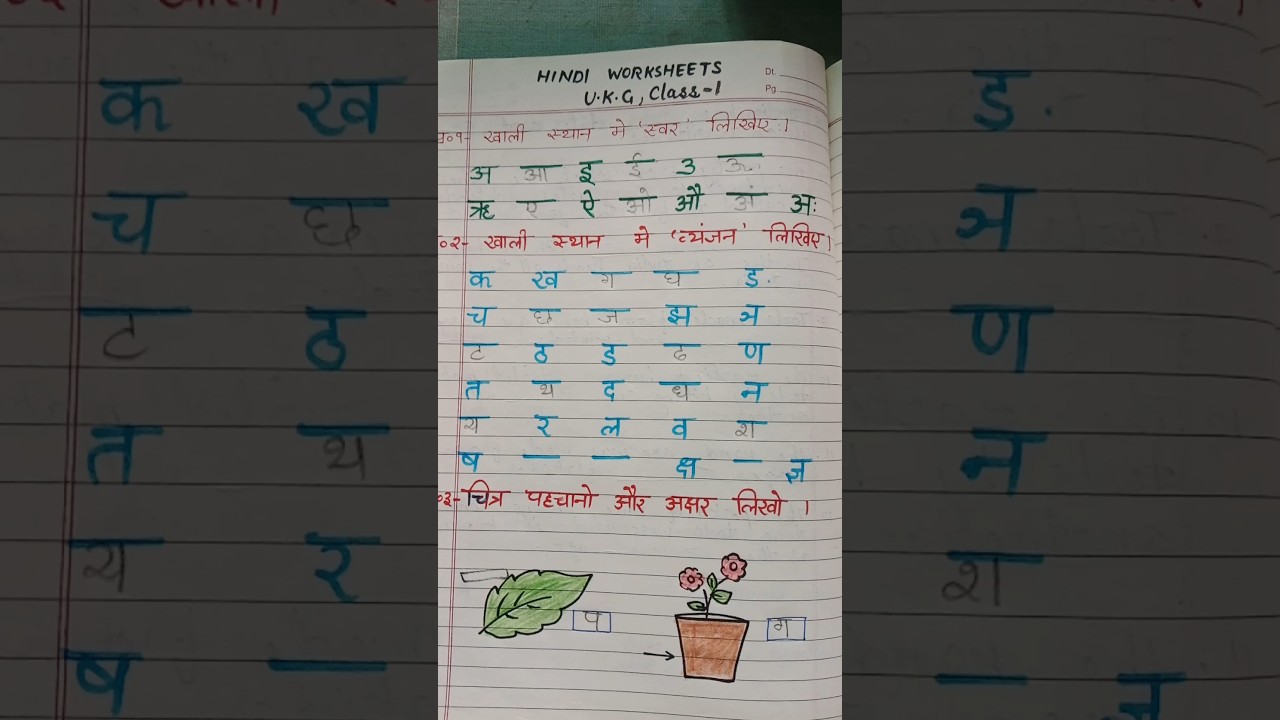 HINDI WORKSHEETS
U.K.G, Class-1
Dt.
Pg.
प्र०१- खाली स्थान मे 'स्वर' लिखिए।
अ आ इ ई उ ऊ
ऋ ए ऐ ओ औ अं अः
०२- खाली स्थान मे 'व्यंजन' लिखिए।
क ख ग घ ड.
च छ ज झ ञ
ट ठ ड ढ ण
त थ द ध न
य र ल व श
ष _ _ क्ष _ ज्ञ
०३- चित्र पहचानो और अक्षर लिखो ।
प ग